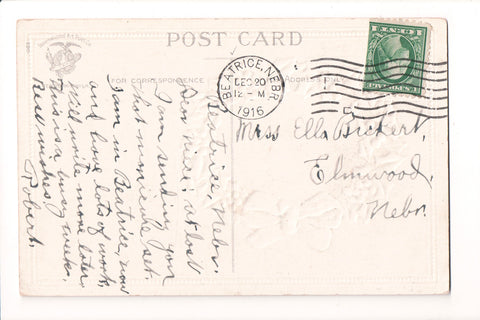 POST CARD
FOR CORRESPONDENCE
BEATRICE, NEBR.
DEC 20
12-M
1916
Miss Ella Bickert,
Elmwood,
Nebr.
Beatrice, Nebr.
Dear Niece: at last
I am sending you
that set.
I am in Beatrice, now
and have lots of work,
Will write more later,
This is a busy week.
Best wishes,
Robert.